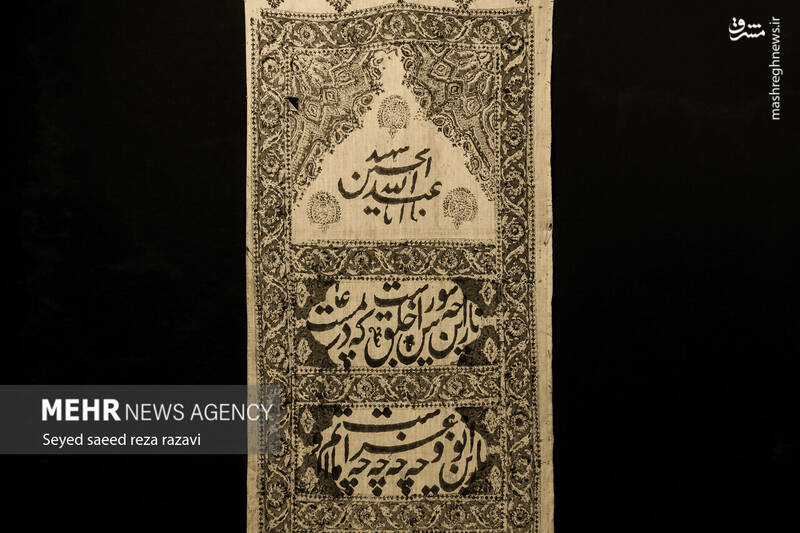 مشرق
mashreghnews.ir
یا ابا عبدالله الحسین شهید
باز این چه شورش است که در خلق عالم است
باز این چه نوحه و چه عزا و چه ماتم است
MEHR NEWS AGENCY
Seyed saeed reza razavi